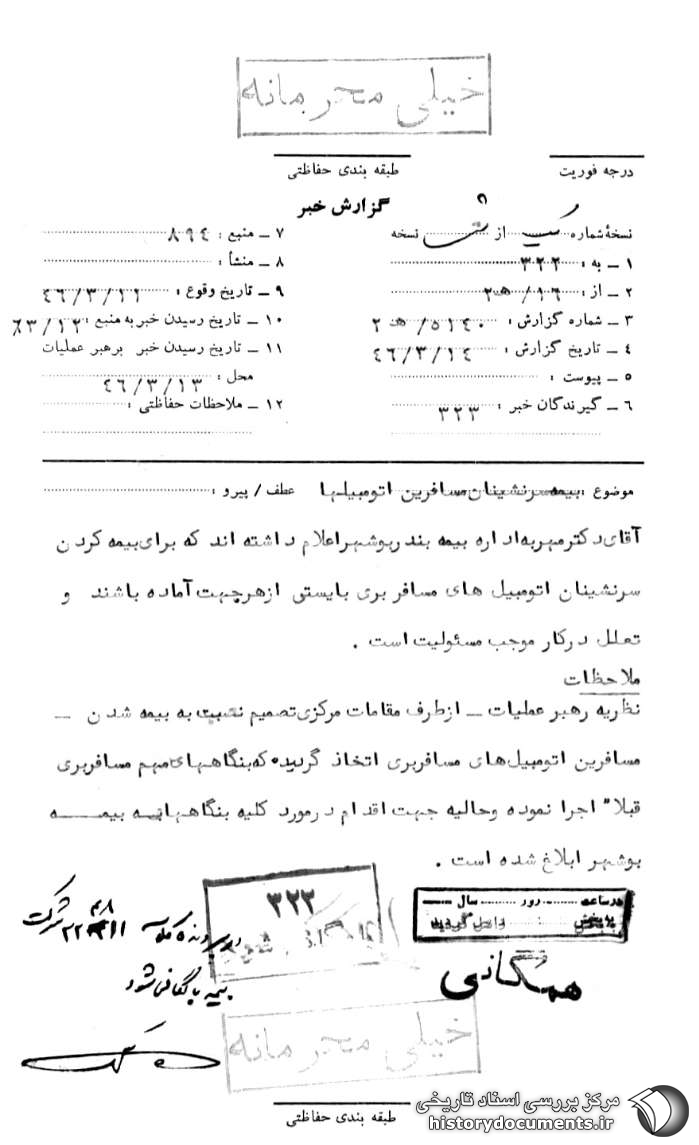 خیلی محرمانه
درجه فوریت
طبقه بندی حفاظتی
گزارش خبر
نسخهٔ شماره از نسخه
۱ ـ به : ۳۲۲
۲ ـ از : ۱۶/ هـ ۲
۳ ـ شماره گزارش : ۵۱۴۰/ هـ ۲
۴ ـ تاریخ گزارش : ۴۶/۳/۱۴
۵ ـ پیوست :
۶ ـ گیرندگان خبر : ۳۲۳
۷ ـ منبع : ۸۹۴
۸ ـ منشأ :
۹ ـ تاریخ وقوع : ۴۶/۳/۱۱
۱۰ ـ تاریخ رسیدن خبر به منبع :
۱۱ ـ تاریخ رسیدن خبر برهبر عملیات
محل : ۴۶/۳/۱۳
۱۲ ـ ملاحظات حفاظتی :
موضوع : بیمه سرنشینان مسافرین اتومبیلها عطف / پیرو :
آقای دکتر مهر به اداره بیمه بندر بوشهر اعلام داشته اند که برای بیمه کردن
سرنشینان اتومبیل های مسافر بری بایستی از هر جهت آماده باشند و
تعلل در کار موجب مسئولیت است .
ملاحظات
نظریه رهبر عملیات ـ از طرف مقامات مرکزی تصمیم نسبت به بیمه شدن ـ
مسافرین اتومبیل های مسافربری اتخاذ گردیده که بنگاههای مهم مسافربری
قبلا" اجرا نموده و حالیه جهت اقدام در مورد کلیه بنگاهها به بیمـــه
بوشهر ابلاغ شده است .
در ساعت روز سال
به بخش واصل گردید
۳۲۲
شرکت
بیمه بایگانی شود
همگانی
خیلی محرمانه
طبقه بندی حفاظتی
مرکز بررسی اسناد تاریخی
historydocuments.ir